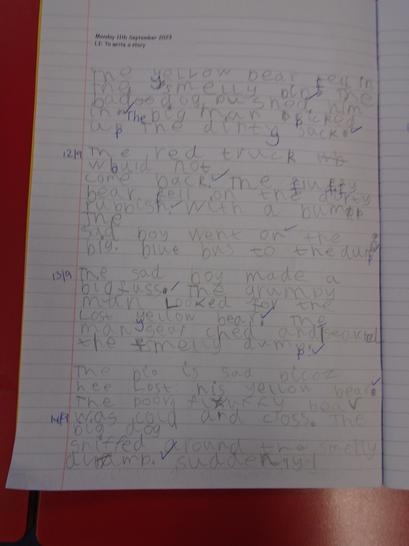 Monday 11th September 2023
LI: To write a story
The yellow bear fell in
the smelly bin. The
bad dog pushed him
in. The big man picked
up the dirty sack.
12/9 The red truck
would not
come back. The fluffy
bear fell on the dirty
rubbish. With a bump
The
sad boy went on the
big. blue bus to the dump
13/9 The sad boy made a
big fuss. The grumpy
man Looked for the
Lost yellow bear. The
man sear ched and
the smelly dump.
The is sad
hee Lost his yellow bear.
The poor bear
14/9 was cold and closs. The
big dog
sniffed around the smelly
dumb. suddenly